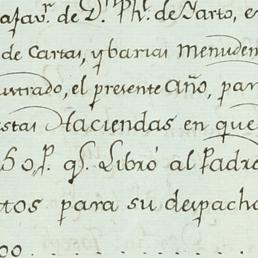 afav.r de D.n Ph.e de Zarto, e
de Cartas, y barias menuden
ustrado, el presente Año, par
estas Haciendas en que
so p. q.e Libró al Padre
tos para su despacho
00